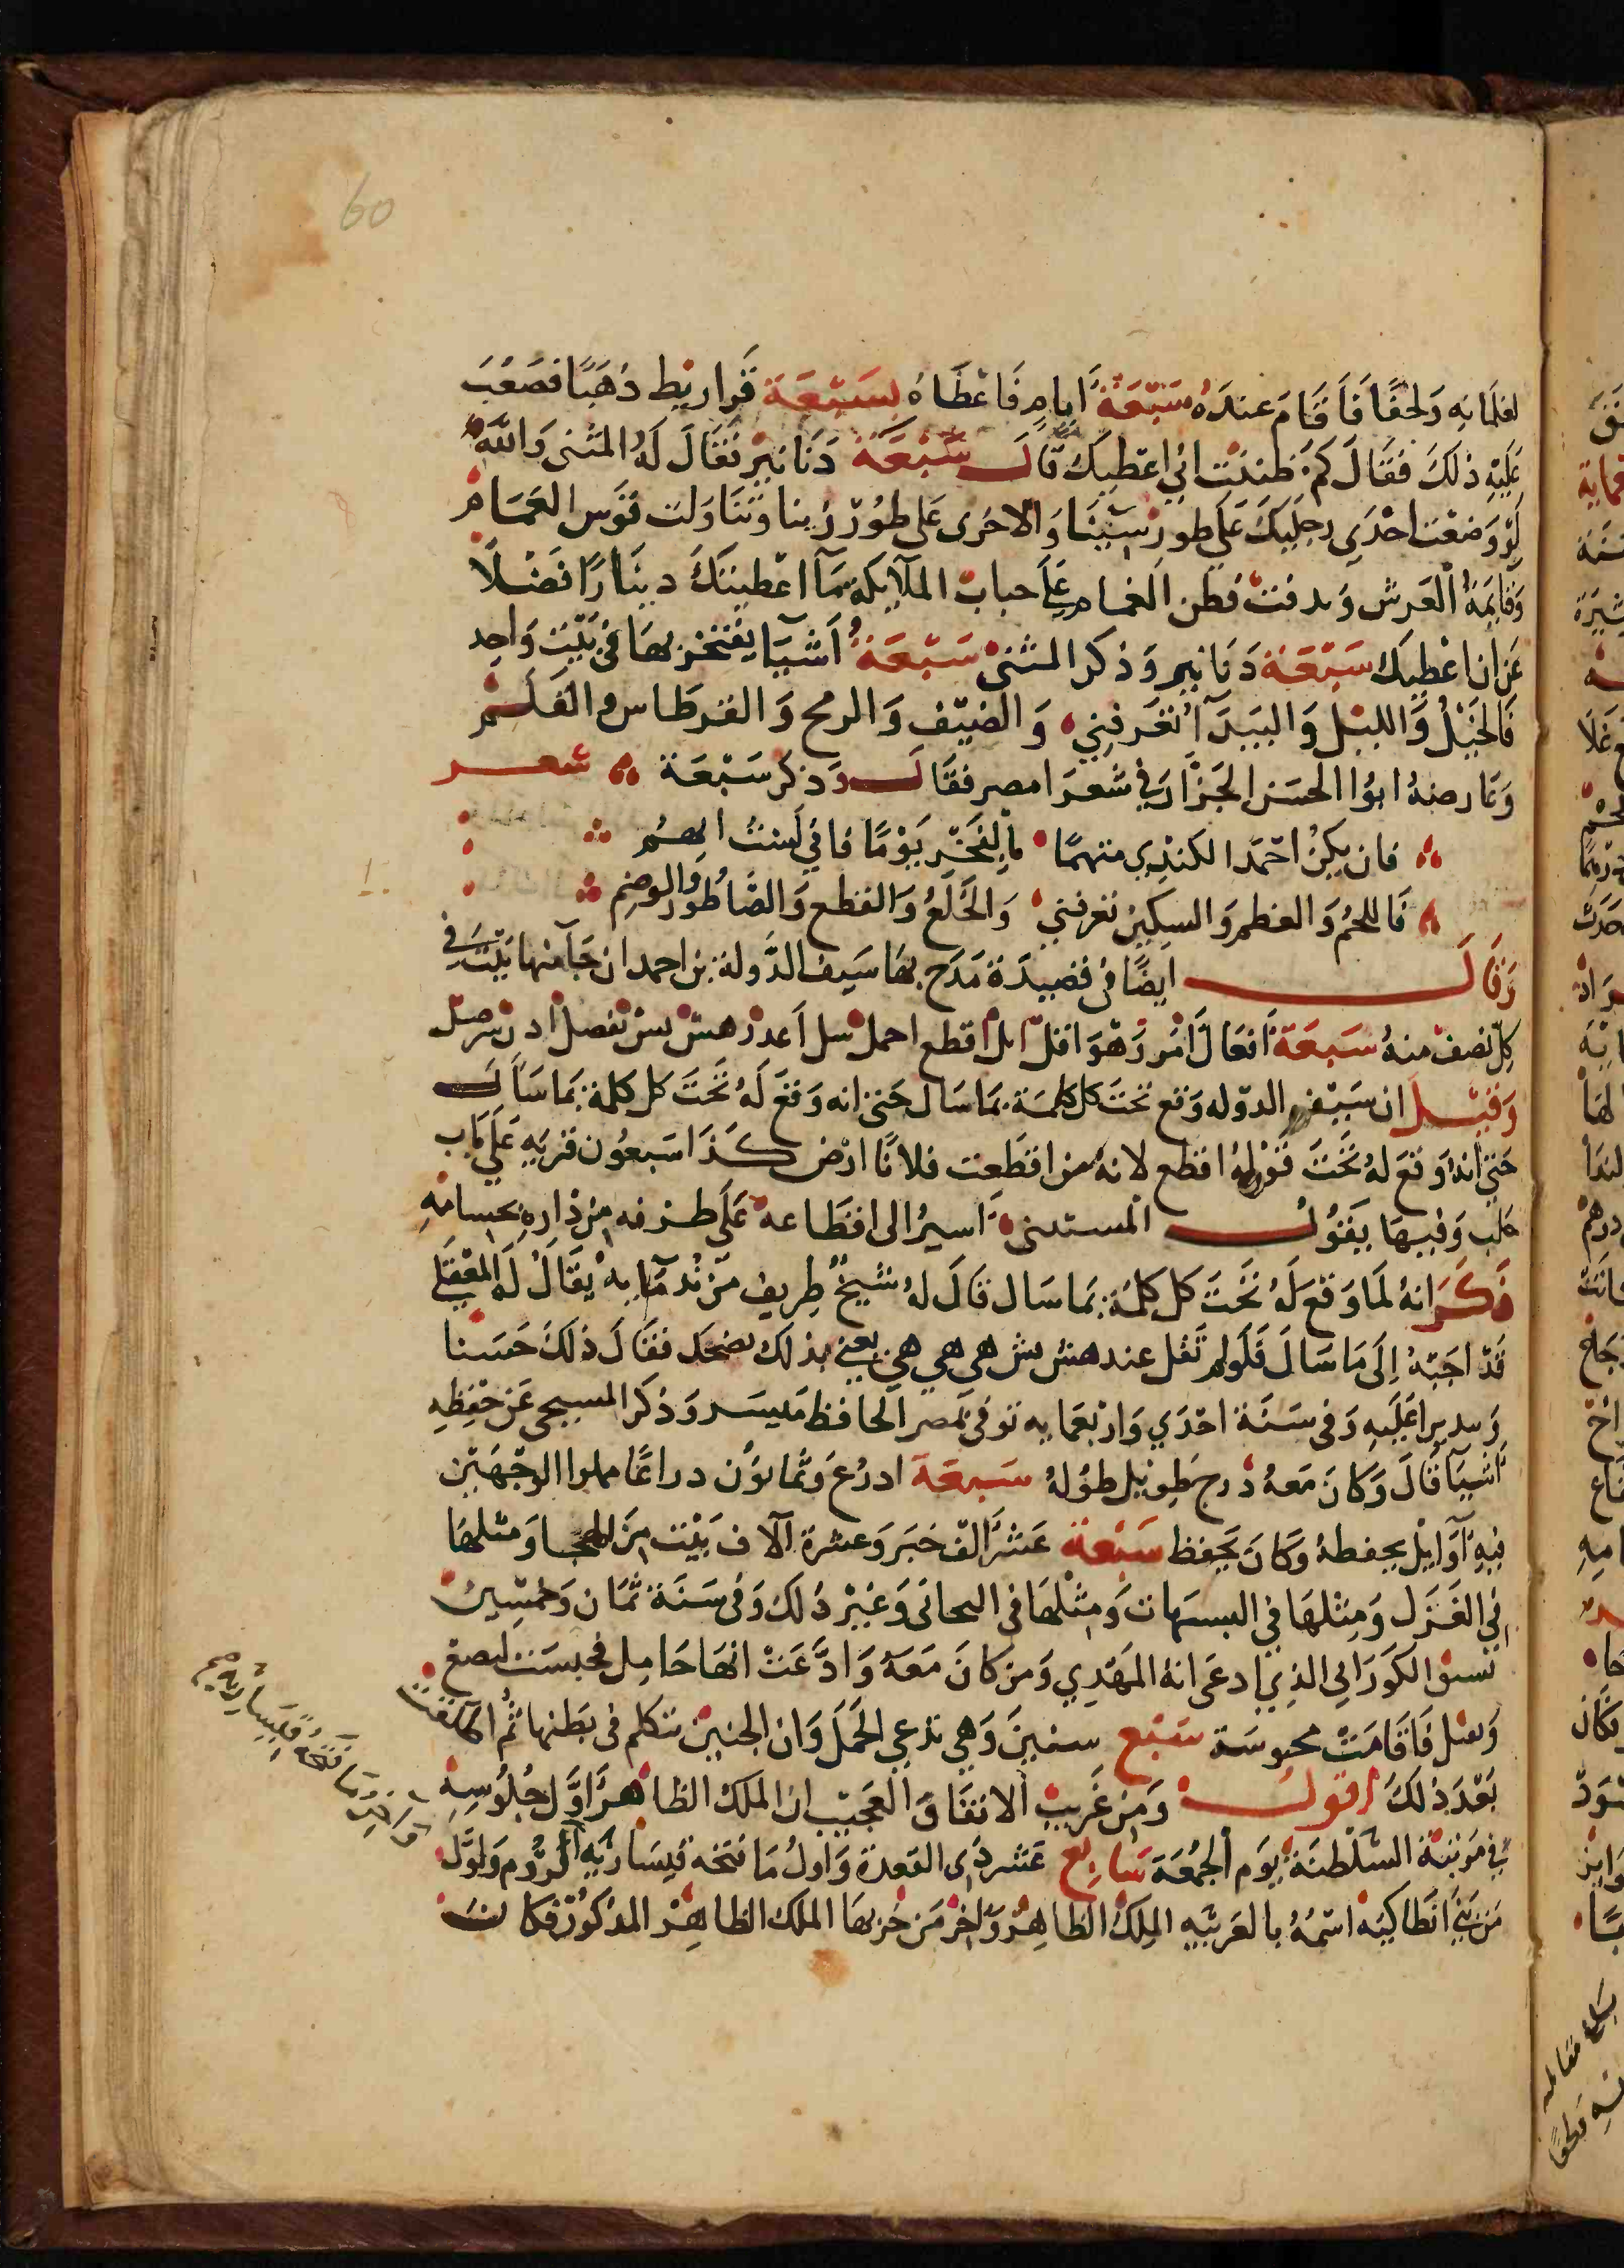 60
لغلمانه ولحفًا فاقام عنده سبعة ايام فاعطاه سبعة قراريط ذهبًا فصعب
عليه ذلك فقال كم ظننت اني اعطيك قال سبعة دنانير فقال له المثنى والله
لو وضعت احدي رجليك على طور سينا والاخرى على طور زينا وتناولت قوس الغمام
وقايمة العرش وندفت قطن الغمام على جباب الملايكة ما اعطيتك دينارًا فضلًا
عن ان اعطيك سبعة دنانير وذكر المثنى سبعة اشيا يفتخر بها في بيت واحد
فالخيل والليل والبيدآ تعرفني والضيف والرمح والقرطاس والقلم
وعارضه ابوا الحسن الجزار في شعرا مصر فقال وذكر سبعة شعر
فان يكن احمد الكندي متهمًا بالفخر يومًا فاني لست اتهم
فاللحم والعظم والسكين تعرفني والخلع والقطع والصاطور والوضم
وقال ايضًا في قصيدة مدح بها سيف الدولة بن احمدان جآ منها بيت في
كل نصف منه سبعة افعال امر وهو اقل انل اقطع احمل سل اعد زد هش بش تفضل ادن سر صل
وقيل ان سيف الدوله وقع تحت كل كلمة بما سال حتى انه وقع له تحت كل كلمة بما سال
حتى انه وقع له تحت قوله اقطع لانه من اقطعت فلانًا ارض كذا سبعون قريه على باب
حلب وفيها يقول المستثنى اسير الى اقطاعه على طرفه من داره بحسامه
ذكر انه لما وقع له تحت كل كلمة بما سال قال له شيخ ظريف من ندمآ به يقال له المعقلي
قد اجبته الى ما سال فلو لم تقل عند هش بش هي هي هي يعني بذلك يضحك فقال ذلك حسنا
عليه وفي سنة احدي واربعمايه توفي بمصر الحافظ ميسر وذكر المسبحي عن حفظه
اشيا قال وكان معه درج طويل طوله سبعة ادرع وثمانون دراعًا مملوا الوجهتين
فيه اوايل يحفظه وكان يحفظ سبعة عشر الف خبر وعشرة الاف بيت من الهجا ومثلها
في الغزل ومثلها في التشبيهات ومثلها في المجاني وغير ذلك وفي سنة ثمان وخمسين
نسق الكوراني الذي ادعى انه المهدي ومن كان معه وادعت انها حامل فحبست لتضع
وتقتل فاقامت محبوسة سبع سنين وهي تدعي الحمل وان الجنين يتكلم في بطنها ثم
بعد ذلك اقول ومن غريب الاتفاق العجيب ان الملك الظاهر اول جلوسه
في مرتبة السلطنة يوم الجمعة سابع عشر ذى القعدة واول ما فتحه قيسارية الروم واول
من بني انطاكيه اسمه بالعربيه الملك الظاهر واخر من خربها الملك الظاهر المذكور فكانت
واخر ما فتحه قيسارية